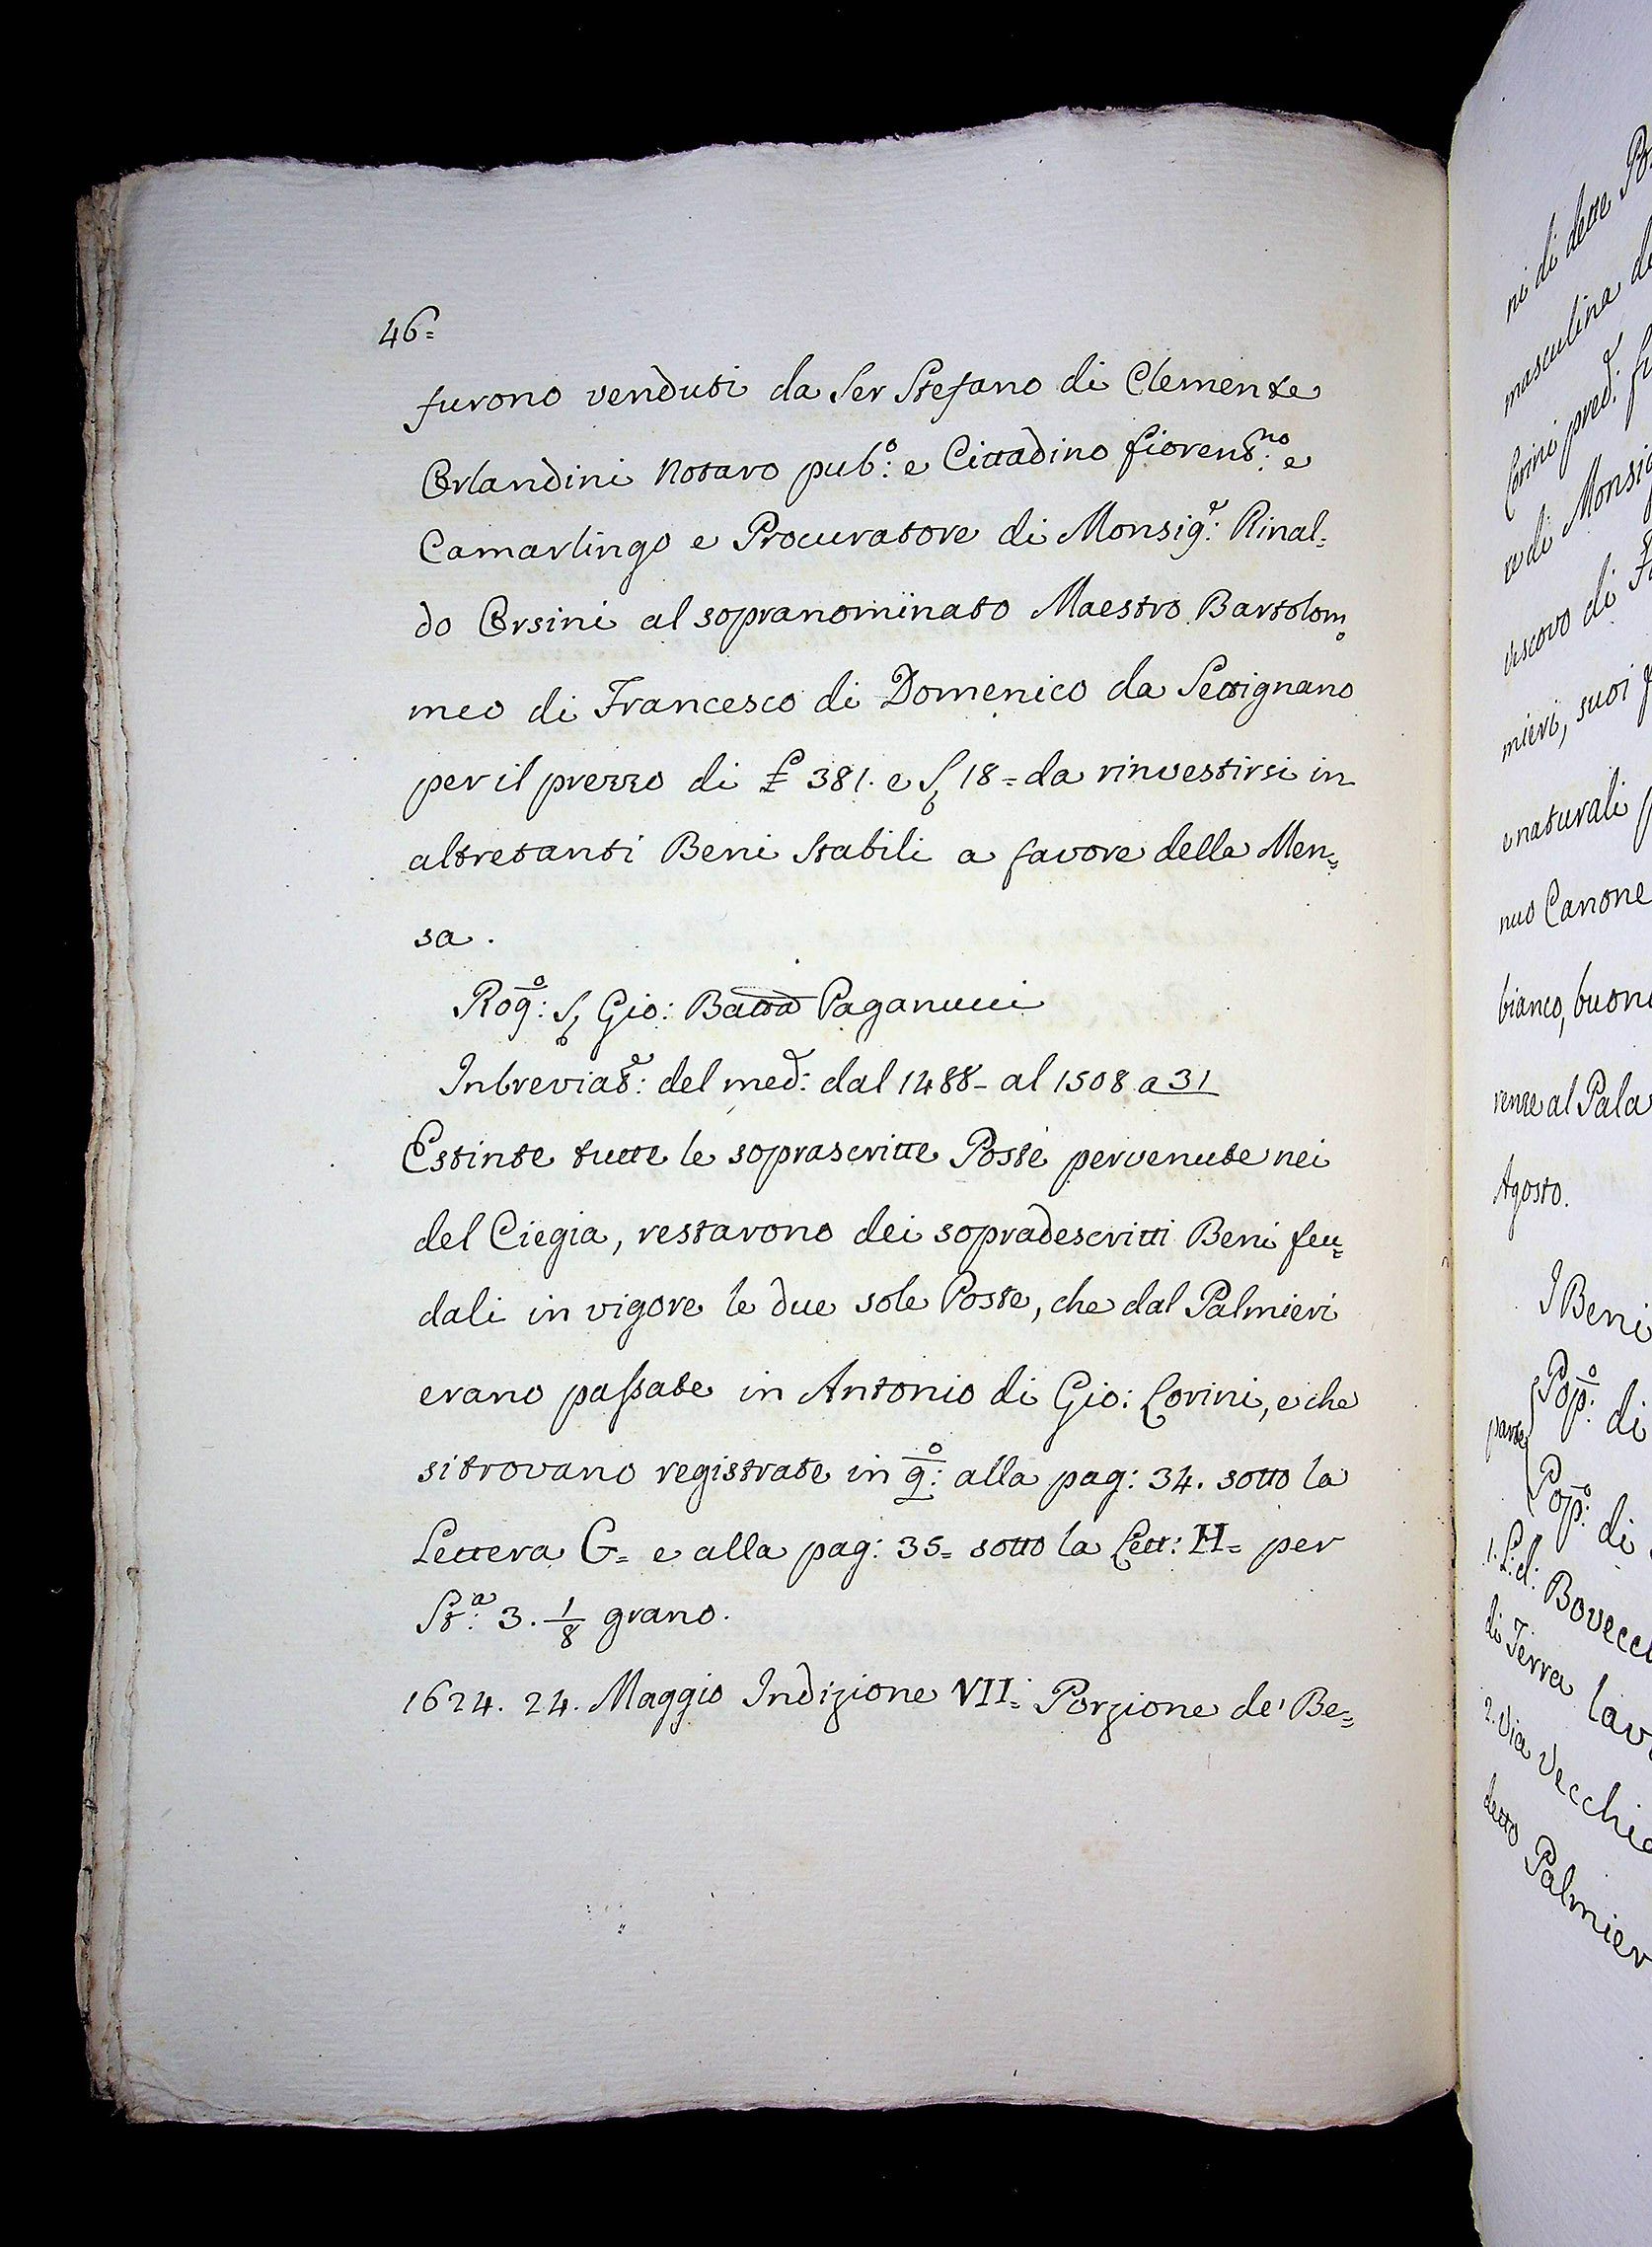 46=
furono venduti da Ser Stefano di Clemente
Orlandini Notaro pub:º e Cittadino fiorent:ⁿᵒ e
Camarlingo e Procuratore di Monsig:ʳ Rinal=
do Orsini al sopranominato Maestro Bartolom=
meo di Francesco di Domenico da Settignano
per il prezzo di £ 381. e ſ 18= da rinvestirsi in
altretanti Beni Stabili a favore della Men=
sa.
Rog:º S. Gio: Batta Paganucci
Inbreviat:ᵉ del med: dal 1488- al 1508 a 31
Estinte tutte le soprascritte Poste pervenute nei
del Ciegia, restarono dei sopradescritti Beni feu=
dali in vigore le due sole Poste, che dal Palmieri
erano paſsate in Antonio di Gio: Lorini, e che
si trovano registrate in q:º alla pag: 34. sotto la
Lettera G= e alla pag: 35= sotto la Lett: H= per
St:ᵃ 3. 1/8 grano.
1624. 24. Maggio Indizione VII= Porzione de' Be=
ni di dette
masculina
Lorini pred:
re di
vescovo di
mieri, suoi
e naturali
nuo Canone
bianco, buono
al
Agosto.
I Beni
parte
Pop:º di
Pop:º di
1. L: d: 
di Terra
2. Via Vecchia
detto